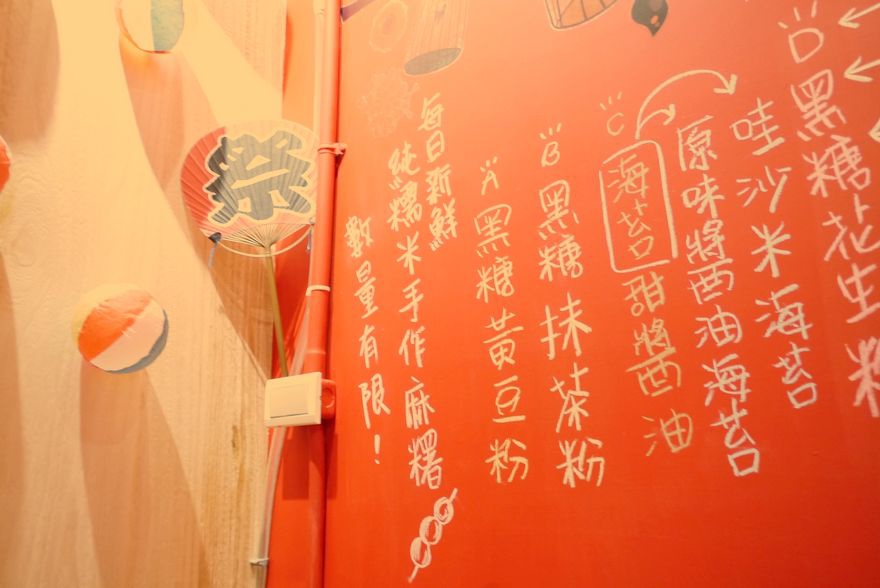 祭
每日新鮮
純糯米手作麻糬
數量有限!
A 黑糖黃豆粉
B 黑糖抹茶粉
C 海苔甜醬油
原味醬油海苔
哇沙米海苔
D 黑糖花生粉